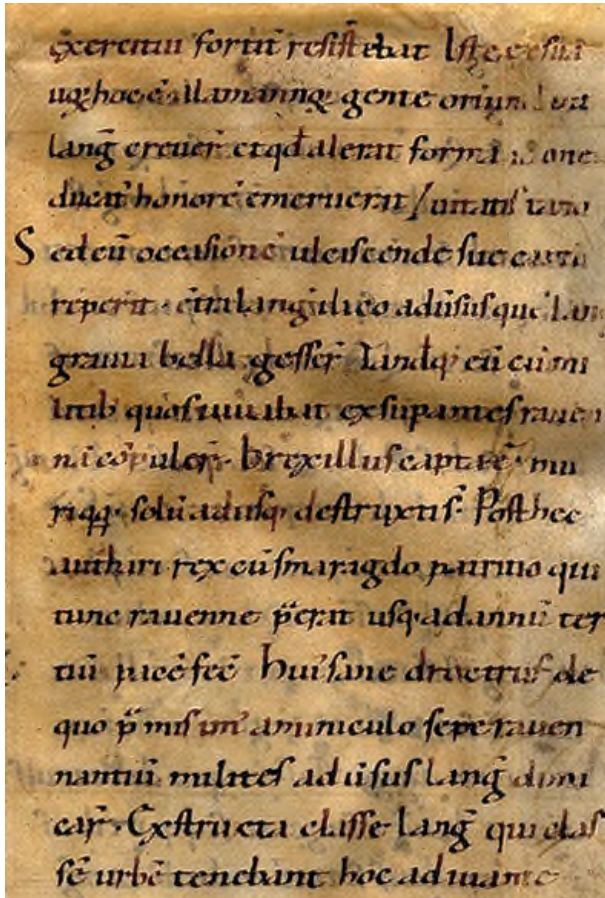 exercitui fortit̄ resistebat Iste ex sua
uoq; hoc ē alamannoꝝ gente oriundus
lang̃ creuer̃ et qđ at erat forma idone
ducat' honorē emeruerat
Sed cū occasionē ulciscende sue
reperit · c̄tra lang̃ ilico aduersus que lan
grauia bella gesser̃ Tandēq; eū cū mi
litib; quos iuuabat exsupantes rauen
nā cōpuler̃ · brexillus capta ē · mu
riq; q; · solū adusq; destructi s̄ · Post hec
authari rex cū smaragdo patricio qui
tunc rauenne p̄erat usq; ad annū ter
tiū pacē fec̄ hui' sane droctrulf de
quo p̄misim' aminiculo sepe rauen
nantiū milites aduersus lang̃ dimi
car̃ · Extructa classe lang̃ qui clas
sē urbē tenebant hoc adiuuante